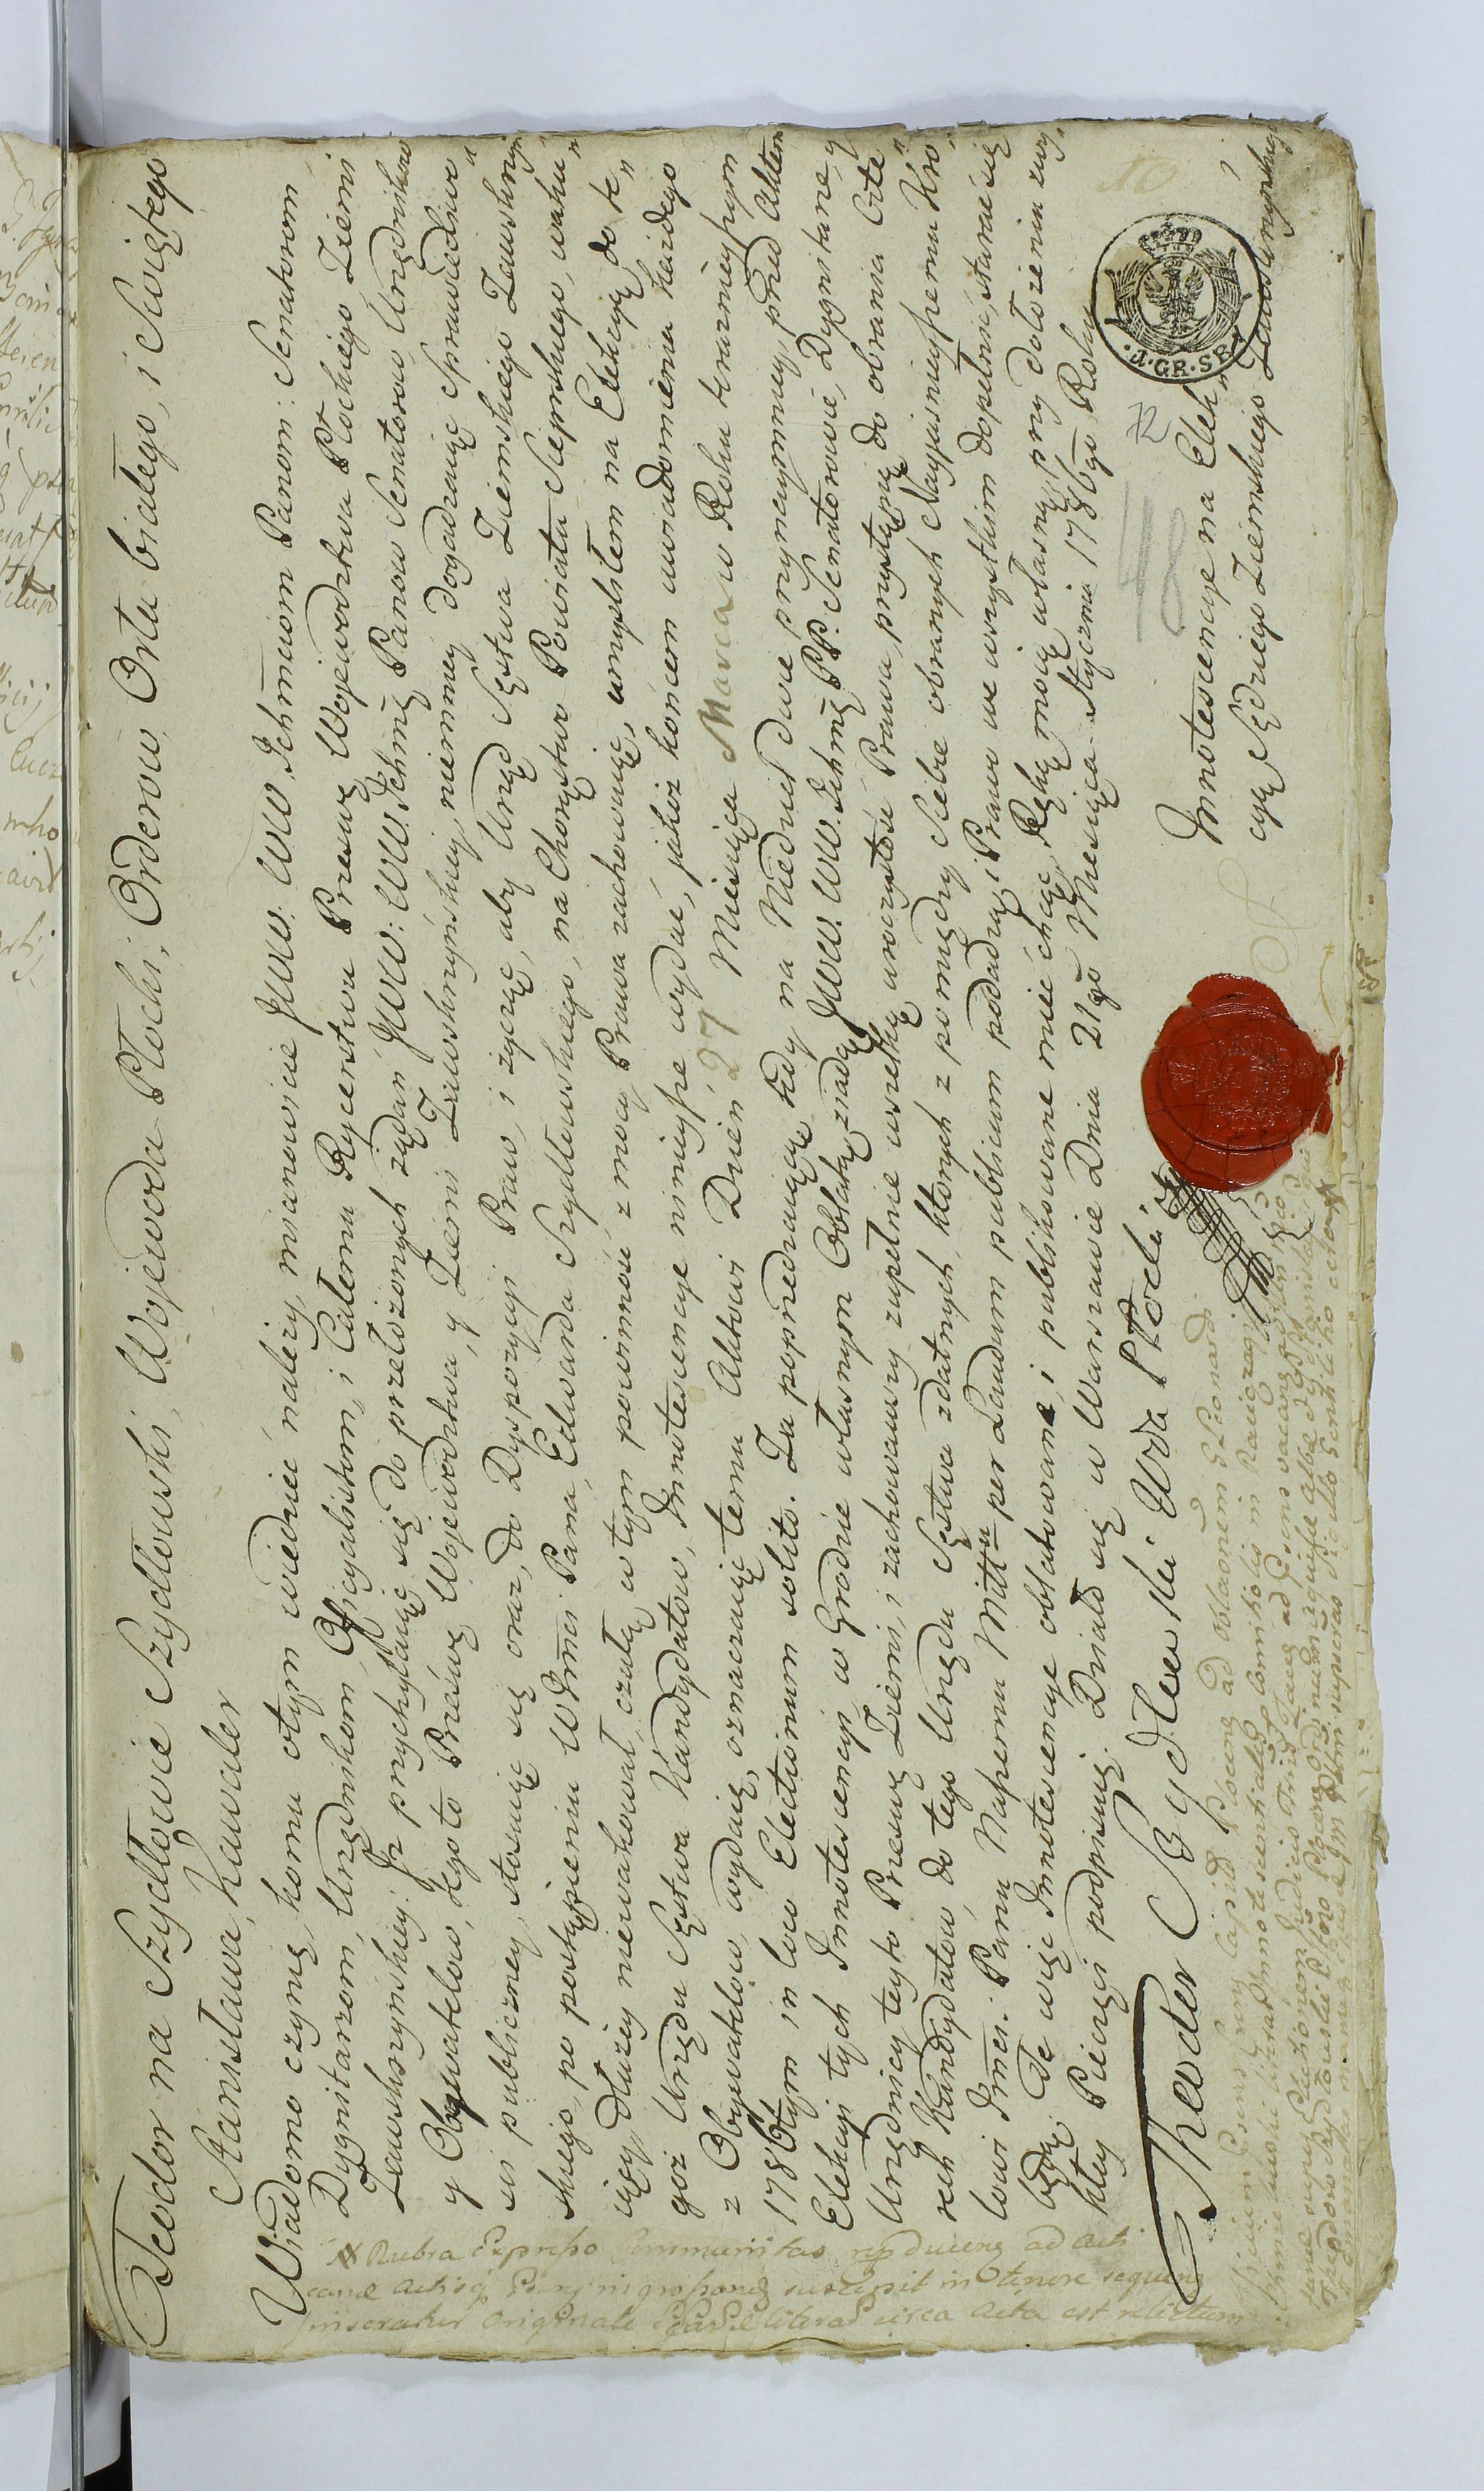 Teodor na Szydłowie Szydłowski, Wojewoda Płocki, Orderow, Orła białego, i Swiętego
Stanisława, Kawaler
Wiadomo czynię, komu otym wiedzieć należy, mianowicie JWW: WW, Ichmciom Panom: Senatorom,
Dygnitarzom, Urzędnikom, Officyalistom, i Całemu Rycerstwu Prześwę Wojewodztwa Płockiego Ziemi
Zawskrzyńskiey: Iż przychylaiąc się do przełożonych żądań JWW: WW. Ichmć Panow Senatorow, Urzędnikow
y Obywatelow, tego to Prześwę Wojewodztwa, y Ziemi Zawskrzyńskiey, niemniey dogadzaiąc Sprawiedliwo"
ści publiczney, stosuiąc się oraz, do Dyspozycyi Praw, i życząc, aby Urząd Sęstwa Ziemskiego Zawskrzyń"
skiego, po postąpieniu WJmci Pana, Edwarda Szydłowskiego, na Chorąstwo Powiatu Sierpskiego, waku"
iący, dłużey niewakował, czułą, w tym powinność z mocy Prawa zachowuiąc, umysłem na Elekcyą do te"
goż Urzędu Sęstwa Kandydatow, Innotescencye ninieysze wydać, jakoż końcem uwiadomienia każdego
z Obywatelow, wydaię, oznaczaiąc temu Aktowi Dzień 27 Miesiąca Marca w Roku teraznieyszym
1786tym in loco Electionum solito. Za poprzedzaiącą tedy na Niedziel dwie przynaymniey, przed Aktem
Elekcyi tych Innotescencyi w Grodzie własnym Oblatą, ziadą JWW. WW. Ichmć PP. Senatorowie, Dygnitarze, y
Urzędnicy teyto Prześwę Ziemi, i zachowawszy zupełnie wszelką uroczystość Prawa, przystąpią do obrania Czte"
rech Kandydatow, do tego Urzędu Sęstwa zdatnych, ktorych z pomiędzy Siebie obranych Nayiasnieyszemu Kro"
lowi Jmci: Panu Naszemu Mittu per Laudum publicum podadzą, i Prawu we wszystkim dopełnić, starać się
będą. Te więc Innotescencye oblatowane, i publikowane mieć chcąc, Ręką moią własną, przy dołożeniu zwy"
kłey Pieczęci podpisuię. Działo się w Warszawie Dnia 21go Miesiąca Stycznia 1786go Roku
Theodor Szydłowski Wda Płocki
Innotescencye na Elek"
cyą Sędziego Ziemskiego Zawskrzyńskiego
48
1.GR.SR
Rubra Expresso